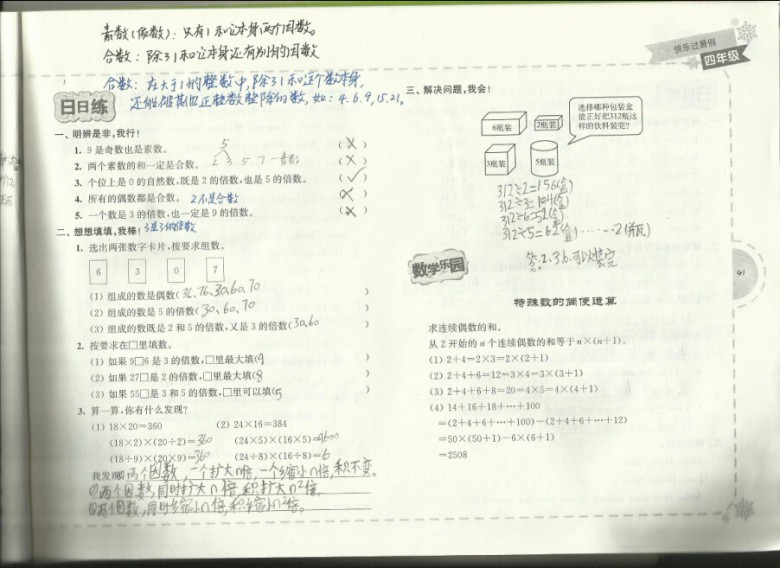 素数(质数):只有1和它本身两个因数。
合数:除了1和它本身还有别的因数
合数:在大于1的整数中,除了1和这个数本身,
还能被其他正整数整除的数,如:4.6.9,15.21。
日日练
一、明辨是非,我行!
1. 9是奇数也是素数。 (×)
5
2. 两个素数的和一定是合数。 2 3 5 7 (×)
3. 个位上是0的自然数,既是2的倍数,也是5的倍数。 (✓)
4. 所有的偶数都是合数。 2不是合数 (×)
5. 一个数是3的倍数,也一定是9的倍数。 (×)
3是3的倍数
二、想想填填,我棒!
1. 选出两张数字卡片,按要求组数。
6 3 0 7
(1) 组成的数是偶数(36,76,30,60,70 )
(2) 组成的数是5的倍数(30,60,70 )
(3) 组成的数既是2和5的倍数,又是3的倍数(30,60 )
2. 按要求在□里填数。
(1) 如果9□6是3的倍数,□里最大填(9 )
(2) 如果27□是2的倍数,□里最大填(8 )
(3) 如果55□是3和5的倍数,□里可以填(5 )
3. 算一算,你有什么发现?
(1) 18×20=360 (2) 24×16=384
(18×2)×(20÷2)=360 (24×5)×(16×5)=9600
(18÷9)×(20×9)=360 (24÷8)×(16÷8)=6
我发现两个因数,一个扩大n倍,一个缩小n倍,积不变。
①两个因数,同时扩大n倍,积扩大n²倍。
②两个因数,同时缩小n倍,积缩小n²倍。
快乐过暑假
四年级
三、解决问题,我会!
6瓶装 2瓶装
3瓶装 5瓶装
选择哪种包装盒
能正好把312瓶这
样的饮料装完?
312÷2=156(盒)
312÷3=104(盒)
312÷6=52(盒)
312÷5=62(盒)……2(瓶)
答:2.3.6.可以装完
数学乐园
特殊数的简便运算
求连续偶数的和。
从2开始的n个连续偶数的和等于n×(n+1)。
(1) 2+4=2×3=2×(2+1)
(2) 2+4+6=12=3×4=3×(3+1)
(3) 2+4+6+8=20=4×5=4×(4+1)
(4) 14+16+18+…+100
=(2+4+6+…+100)-(2+4+6+…+12)
=50×(50+1)-6×(6+1)
=2508
41